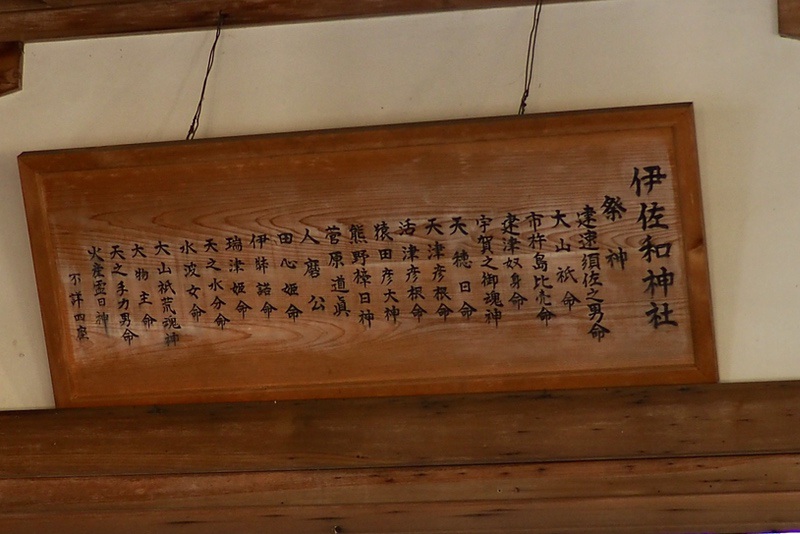 伊佐和神社
祭神
建速須佐之男命
大山祇命
市杵島比売命
建津奴身命
宇賀之御魂神
天穂日命
天津彦根命
活津彦根命
猿田彦大神
熊野樟日神
菅原道眞
人磨公
田心姫命
伊弉諾命
瑞津姫命
天之水分命
水波女命
大山祇荒魂神
大物主命
天之手力男命
火産霊日神
不詳四座